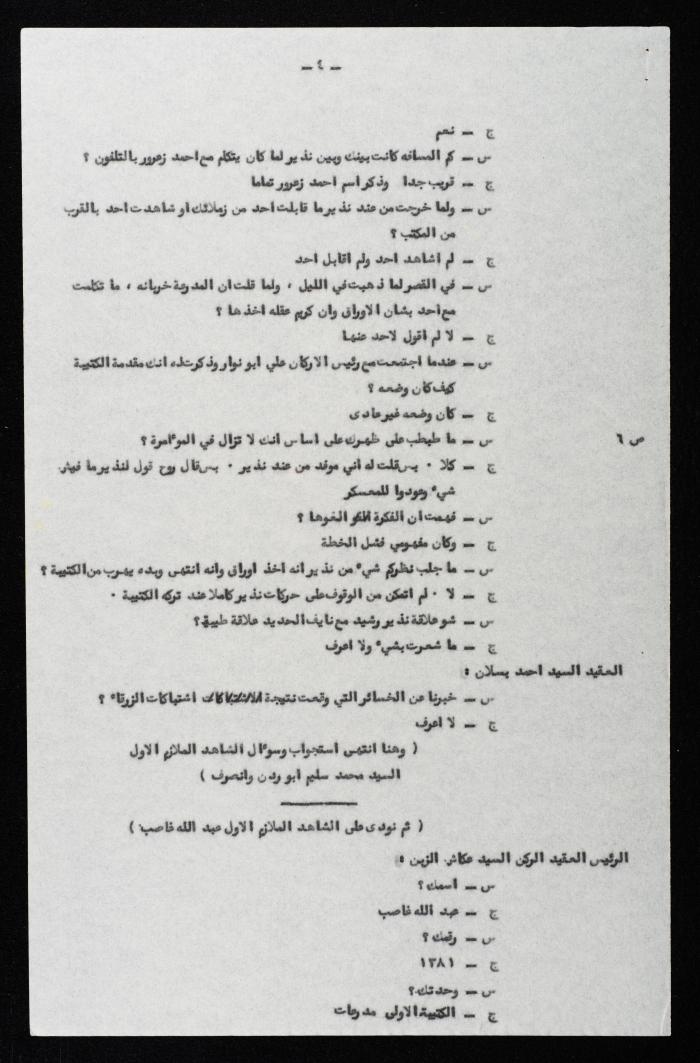 - ٤ -
ج - نعم
س - كم المسافه كانت بينك وبين نذير لما كان يتكلم مع احمد زعرور بالتلفون ؟
ج - قريب جدا وذكر اسم احمد زعرور تماما
س - ولما خرجت من عند نذير ما قابلت احد من زملائك او شاهدت احد بالقرب
من المكتب ؟
ج - لم اشاهد احد ولم اقابل احد
س - في القصر لما ذهبت في الليل ، ولما قلت ان المدرعة خربانه ، ما تكلمت
مع احد بشان الاوراق وان كريم عقله اخذها ؟
ج - لا لم اقول لاحد عنها
س - عندما اجتمعت مع رئيس الاركان علي ابو نوار وذكرت له انك مقدمة الكتيبة
كيف كان وضعه ؟
ج - كان وضعه غير عادى
ص ٦
س - ما طبطب على ظهرك على اساس انك لا تزال في الموءامرة ؟
ج - كلا ٠ بس قلت له أني موفد من عند نذير ٠ بس قال روح قول لنذير ما فيش
شيء وعودوا للمعسكر
س - فهمت ان الفكرة الغوها ؟
ج - وكان مفهومي فشل الخطة
س - ما جلب نظركم شيء من نذير انه اخذ اوراق وانه انتهى وبده يهرب من الكتيبة ؟
ج - لا ٠ لم اتمكن من الوقوف على حركات نذير كاملا عند تركه الكتيبة ٠
س - شو علاقة نذير رشيد مع نايف الحديد علاقة طيبة ؟
ج - ما شعرت بشيء ولا اعرف
العقيد السيد احمد يسلان :
س - خبرنا عن الخسائر التي وقعت نتيجة اشتباكات الزرقاء ؟
ج - لا اعرف
( وهنا انتهى استجواب وسوءال الشاهد الملازم الاول
السيد محمد سليم ابو ردن وانصرف )
( ثم نودى على الشاهد الملازم الاول عبد الله قاصب )
الرئيس العقيد الركن السيد عكاش الزبن :
س - اسمك ؟
ج - عبد الله قاصب
س - رقمك ؟
ج - ١٣٨١
س - وحدتك ؟
ج - الكتيبة الاولى مدرعات